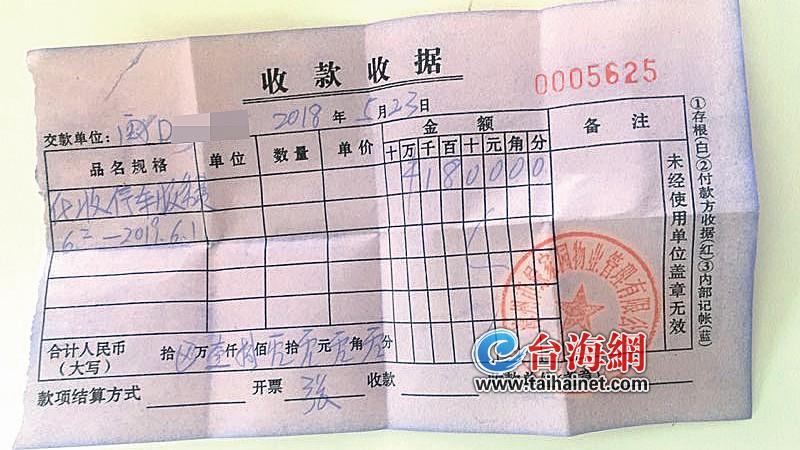 收款收据
0005625
2018年5月23日
交款单位：闽D
品名规格 单位 数量 单价 金额 备注
十万千百十元角分
代收停车服务费 ¥180000
6.2—2019.6.1
未经使用单位盖章无效
①存根(白)②付款方收据(红)③内部记帐(蓝)
合计人民币(大写) 拾 万壹仟捌佰零拾零元零角零分
款项结算方式 开票 张 收款
家园物业管理有限
台海網
www.taihainet.com